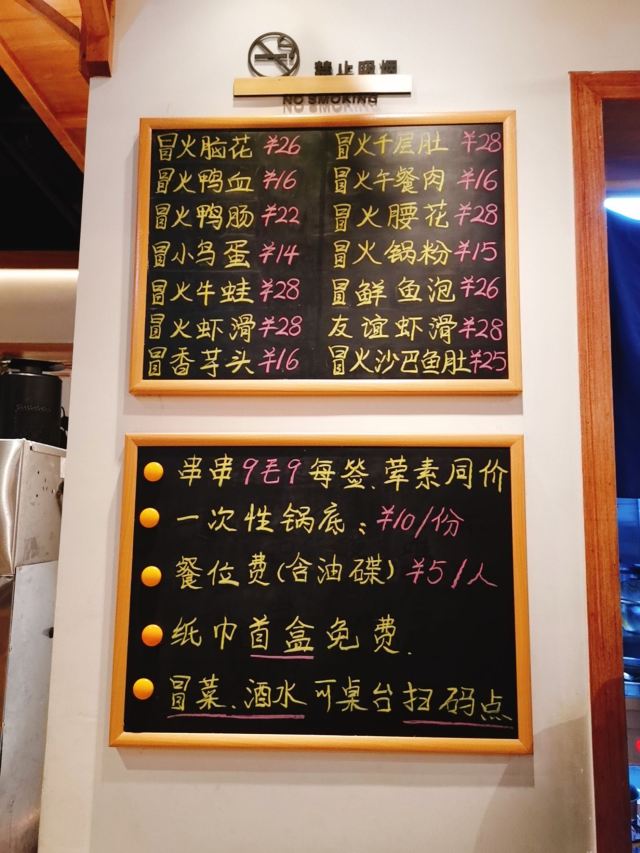 禁止吸烟
NO SMOKING
冒火脑花 ¥26 冒火千层肚 ¥28
冒火鸭血 ¥16 冒火午餐肉 ¥16
冒火鸭肠 ¥22 冒火腰花 ¥28
冒小鸟蛋 ¥14 冒火锅粉 ¥15
冒火牛蛙 ¥28 冒鲜鱼泡 ¥26
冒火虾滑 ¥28 友谊虾滑 ¥28
冒香芋头 ¥16 冒火沙巴鱼肚 ¥25
串串9毛9每签、荤素同价
一次性锅底：¥10/份
餐位费(含油碟) ¥5/人
纸巾首盒免费.
冒菜、酒水可桌台扫码点